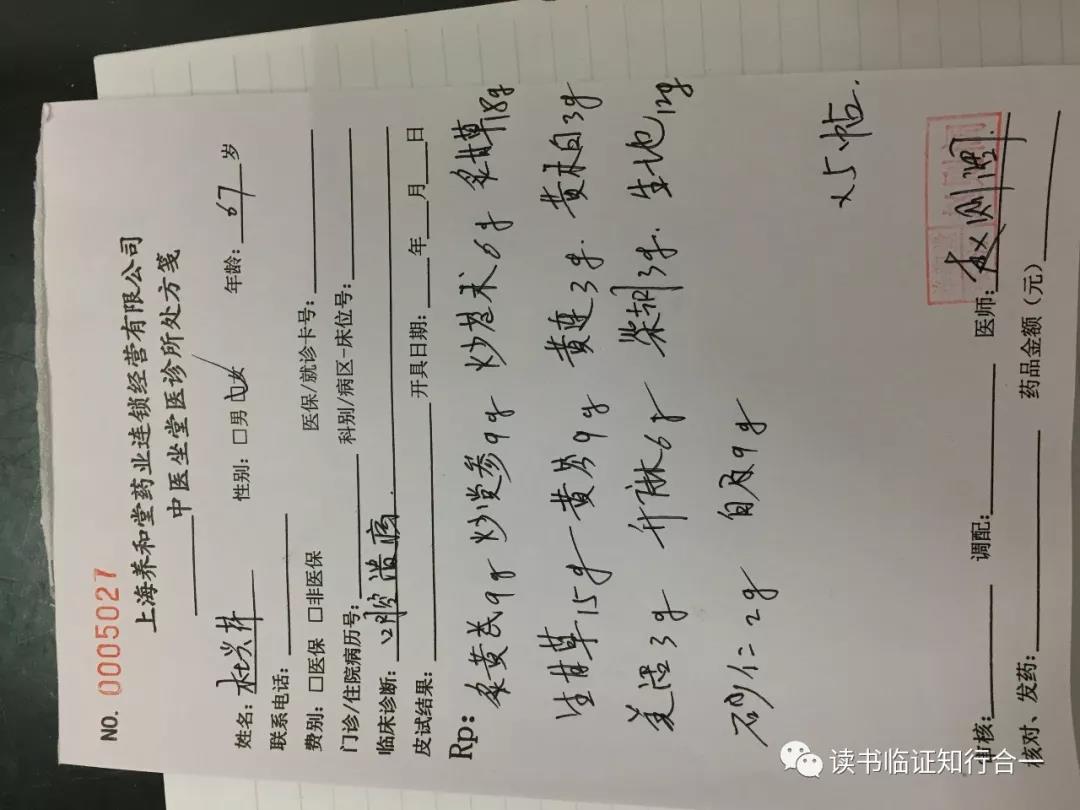 NO. 0005027
上海养和堂药业连锁经营有限公司
中医坐堂医诊所处方笺
姓名: 杜兴林 性别: □男 □女 年龄: 67 岁
联系电话:
费别: □医保 □非医保 医保/就诊卡号:
门诊/住院病历号: 科别/病区-床位号:
临床诊断: 口腔溃疡
皮试结果: 开具日期: 年 月 日
Rp: 炙黄芪9g 炒党参9g 炒苍术6g 炙甘草18g
生甘草15g 黄芩9g 黄连3g 黄柏3g
羌活3g 升麻6g 柴胡3g 生地12g
砂仁2g 9g
x5帖.
审核: 调配: 医师: 赵测润
核对、发药: 药品金额(元)
读书临证知行合一